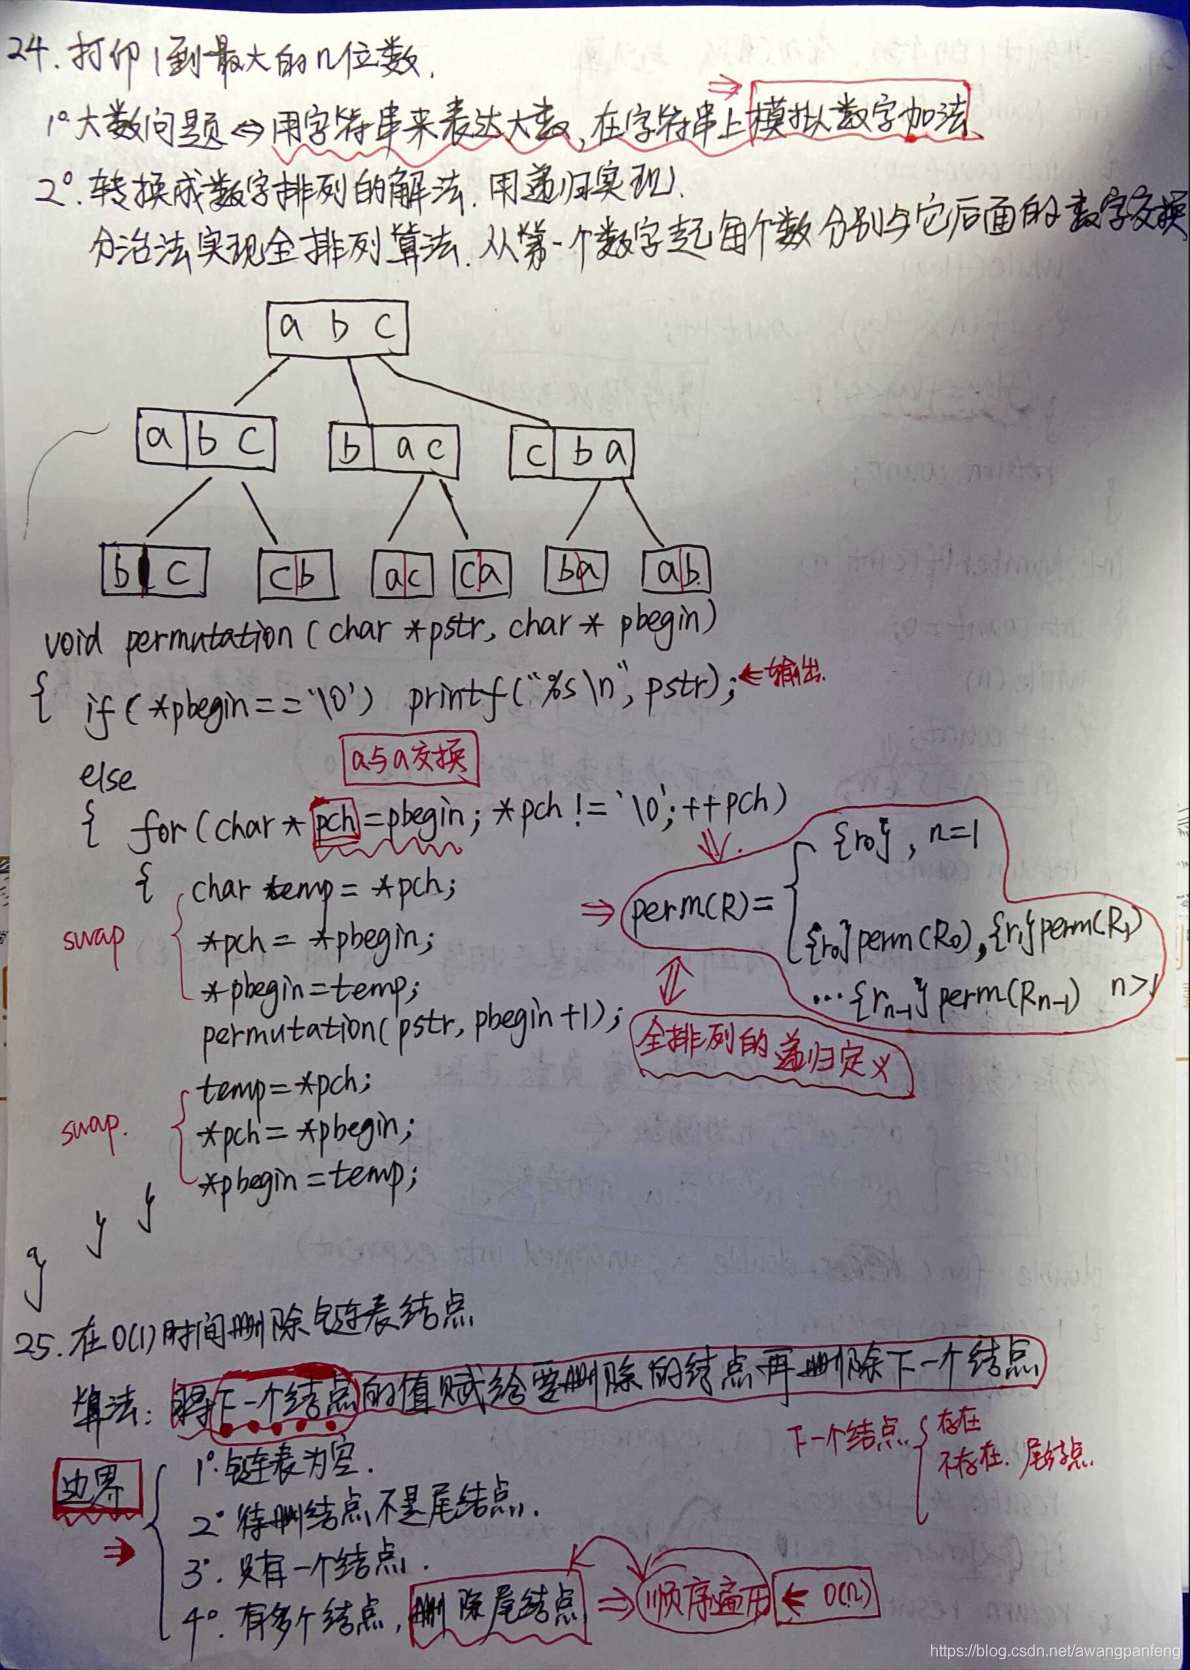 24. 打印1到最大的n位数.
1° 大数问题 ⇔ 用字符串来表达大数, 在字符串上模拟数字加法
⇒
2°. 转换成数字排列的解法. 用递归实现.
分治法实现全排列算法. 从第一个数字起每个数分别与它后面的数字交换
a b c
a b c
b a c
c b a
b c
c b
a c
c a
b a
a b
void permutation (char *pstr, char* pbegin)
{ if (*pbegin == '\0') printf("%s\n", pstr); ← 输出.
a与a交换
else
{ for (char* pch = pbegin; *pch != '\0'; ++pch)
{ char temp = *pch;
swap
*pch = *pbegin;
*pbegin = temp;
permutation(pstr, pbegin+1);
⇒ perm(R) =
{r0}, n=1
{r0}perm(R0), {r1}perm(R1)
... {rn-1}perm(Rn-1) n>1
全排列的递归定义
temp = *pch;
swap.
*pch = *pbegin;
*pbegin = temp;
}
}
}
25. 在O(1)时间删除链表结点
算法: 将下一个结点的值赋给要删除的结点再删除下一个结点
下一个结点
存在
不存在. 尾结点.
边界
⇒
1°. 链表为空.
2° 待删结点不是尾结点.
3°. 只有一个结点.
4°. 有多个结点, 删除尾结点 ⇒ 顺序遍历 ← O(n)
https://blog.csdn.net/awangpanfeng